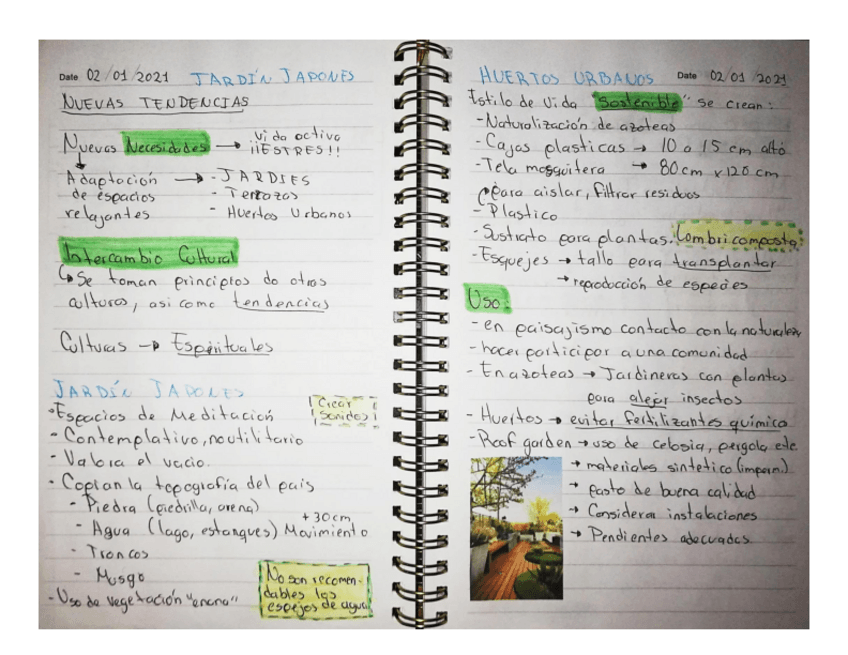 Date 02/01/2021 JARDÍN JAPONES
NUEVAS TENDENCIAS
Nuevas Necesidades → Vida activa
¡¡ESTRES!!
Adaptación → - JARDIES
de espacios - Terrazas
relajantes - Huertos Urbanos
Intercambio Cultural
↳ Se toman principios de otras
culturas, asi como tendencias
Culturas → Espirituales
JARDÍN JAPONES
Crear
sonidos
• Espacios de Meditación
• Contemplativo, no utilitario
- Valora el vacio.
• Copian la topografía del pais
- Piedra (piedrilla, arena)
+30cm
- Agua (lago, estanques) Movimiento
- Troncos
- Musgo
- Uso de vegetación "enana"
No son recomen-
dables los
espejos de agua
HUERTOS URBANOS Date 02/01/2021
Estilo de vida "Sostenible" se crean:
- Naturalización de azoteas
- Cajas plasticas → 10 a 15 cm alto
- Tela mosquitera → 80cm x 120 cm
para aislar, filtrar residuos
- Plastico
- Sustrato para plantas. Lombricomposta
- Esquejes → tallo para transplantar
→ reproducción de especies
Uso:
- en paisajismo contacto con la naturaleza
- hacer participar a una comunidad
- En azoteas → Jardineras con plantas
para alejar insectos
- Huertos → evitar fertilizantes químico
- Roof garden → uso de celosia, pergola etc
→ materiales sintetico (imperm.)
→ pasto de buena calidad
→ Considerar instalaciones
→ Pendientes adecuadas